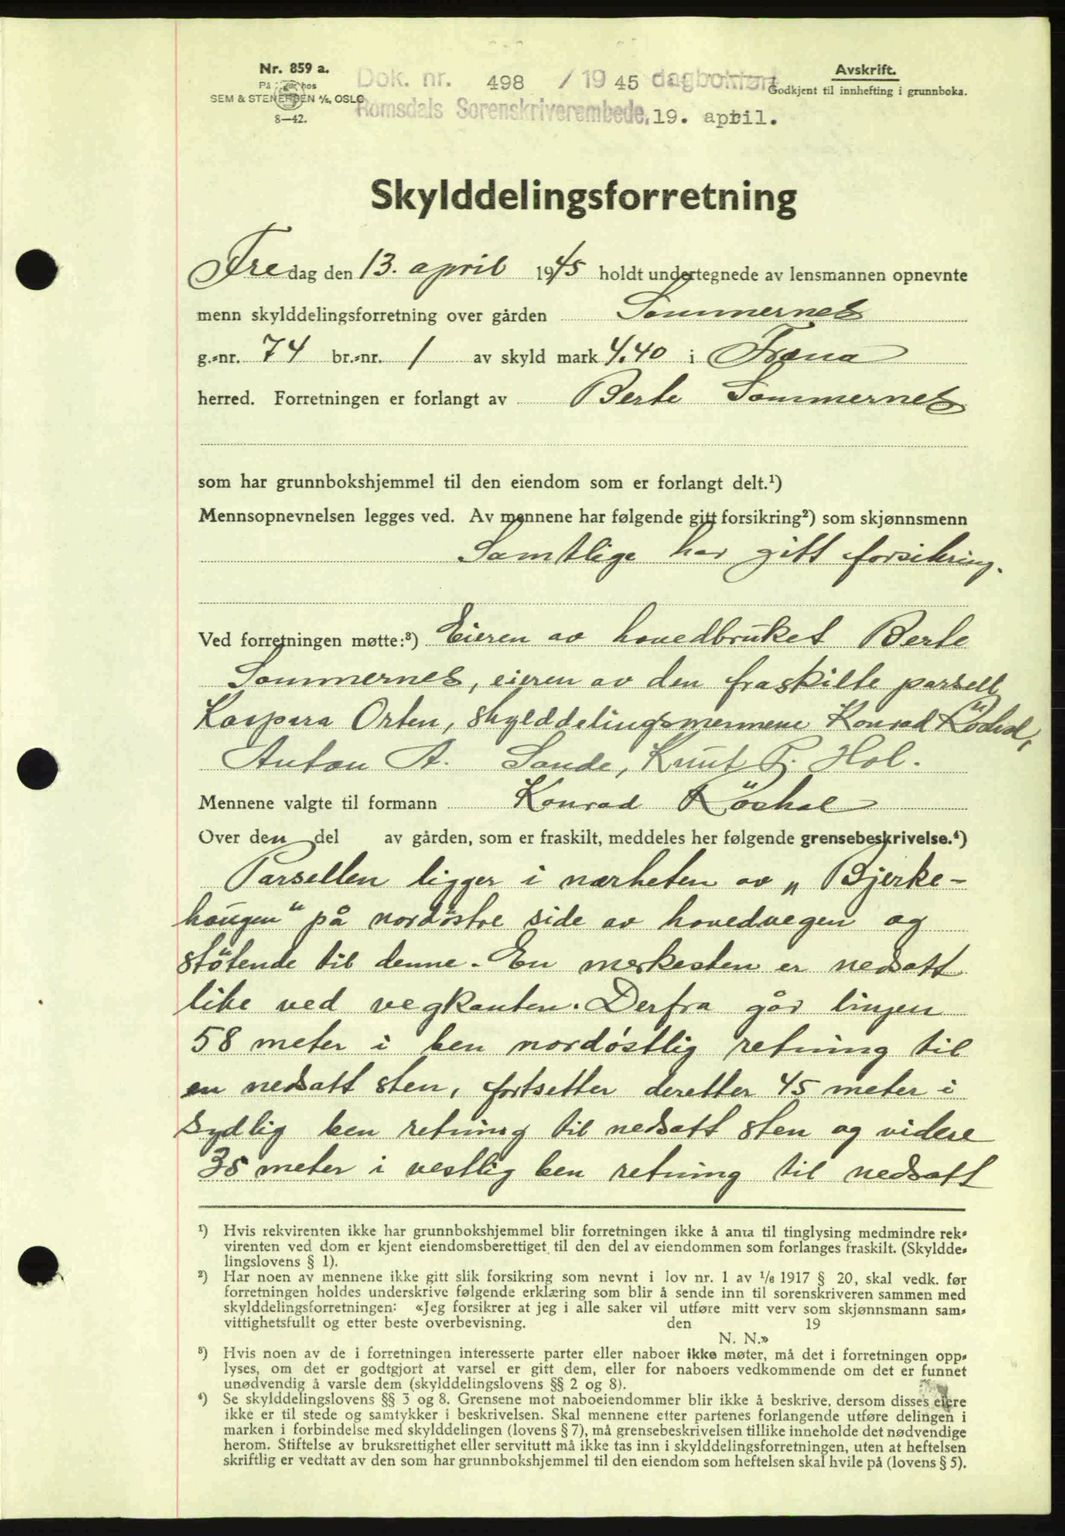 Nr. 859 a.
På hos
SEM & STENERSEN A/S, OSLO
8—42.
Dok. nr. 498 / 1945 dagboken
Romsdals Sorenskriverembede, 19. april.
Avskrift.
Godkjent til innhefting i grunnboka.
Skylddelingsforretning
Fredag den 13. april 1945 holdt undertegnede av lensmannen opnevnte
menn skylddelingsforretning over gården Sommernes
g.-nr. 74 br.-nr. 1 av skyld mark 4.40 i Fræna
herred. Forretningen er forlangt av Berte Sommernes
som har grunnbokshjemmel til den eiendom som er forlangt delt.¹)
Mennsopnevnelsen legges ved. Av mennene har følgende gitt forsikring²) som skjønnsmenn
Samtlige har gitt forsikring.
Ved forretningen møtte:³) Eieren av hovedbruket Berte
Sommernes, eieren av den fraskilte parsell
Kaspara Orten, skylddelingsmennene Konrad Röshol,
Anton A. Sande, Knut P. Hol.
Mennene valgte til formann Konrad Röshol
Over den del av gården, som er fraskilt, meddeles her følgende grensebeskrivelse.⁴)
Parsellen ligger i nærheten av „Bjerke-
haugen" på nordøstre side av hovedvegen og
støtende til denne. En merkesten er nedsatt
like ved vegkanten. Derfra går linjen
58 meter i ben nordøstlig retning til
en nedsatt sten, fortsetter deretter 45 meter i
sydlig ben retning til nedsatt sten og videre
35 meter i vestlig ben retning til nedsatt
¹) Hvis rekvirenten ikke har grunnbokshjemmel blir forretningen ikke å anta til tinglysing medmindre rek-
virenten ved dom er kjent eiendomsberettiget til den del av eiendommen som forlanges fraskilt. (Skyldde-
lingslovens § 1).
²) Har noen av mennene ikke gitt slik forsikring som nevnt i lov nr. 1 av ¹/₆ 1917 § 20, skal vedk. før
forretningen holdes underskrive følgende erklæring som blir å sende inn til sorenskriveren sammen med
skylddelingsforretningen: «Jeg forsikrer at jeg i alle saker vil utføre mitt verv som skjønnsmann sam-
vittighetsfullt og etter beste overbevisning. den 19
N. N.»
³) Hvis noen av de i forretningen interesserte parter eller naboer ikke møter, må det i forretningen opp-
lyses, om det er godtgjort at varsel er gitt dem, eller for naboers vedkommende om det er funnet
unødvendig å varsle dem (skylddelingslovens §§ 2 og 8).
⁴) Se skylddelingslovens §§ 3 og 8. Grensene mot naboeiendommer blir ikke å beskrive, dersom disses eiere
ikke er til stede og samtykker i beskrivelsen. Skal mennene etter partenes forlangende utføre delingen i
marken i forbindelse med skylddelingen (lovens § 7), må grensebeskrivelsen tillike inneholde det nødvendige
herom. Stiftelse av bruksrettighet eller servitutt må ikke tas inn i skylddelingsforretningen, uten at heftelsen
skriftlig er vedtatt av den som har grunnbokshjemmel til den eiendom som heftelsen skal hvile på (lovens § 5).